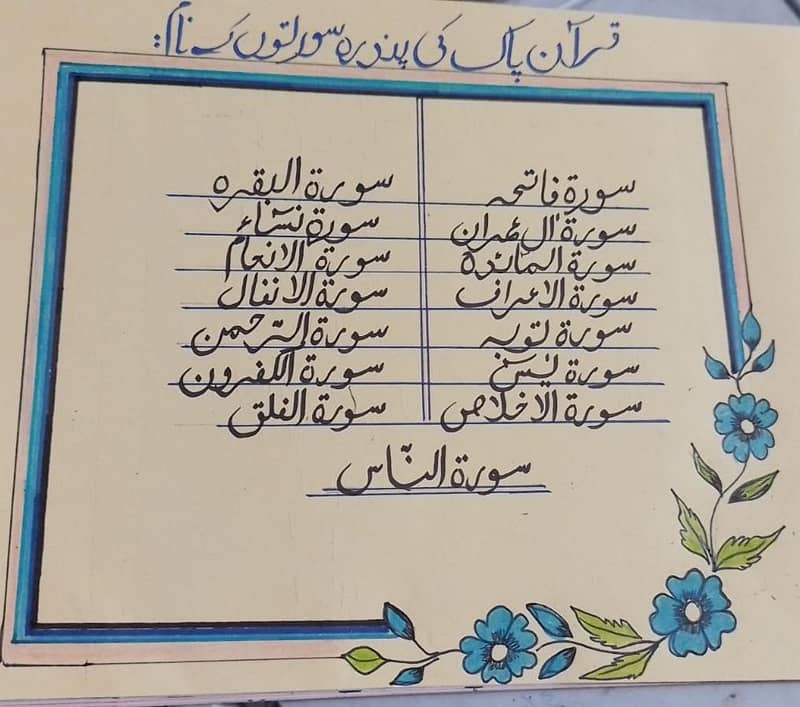 قرآن پاک کی پندرہ سورتوں کے نام:
سورۃ فاتحہ سورۃ البقرہ
سورۃ ال عمران سورۃ نساء
سورۃ المائدۃ سورۃ الانعام
سورۃ الاعراف سورۃ الانفال
سورۃ توبہ سورۃ الرّحمن
سورۃ یٰسن سورۃ الکفرون
سورۃ الاخلاص سورۃ الفلق
سورۃ النّاس